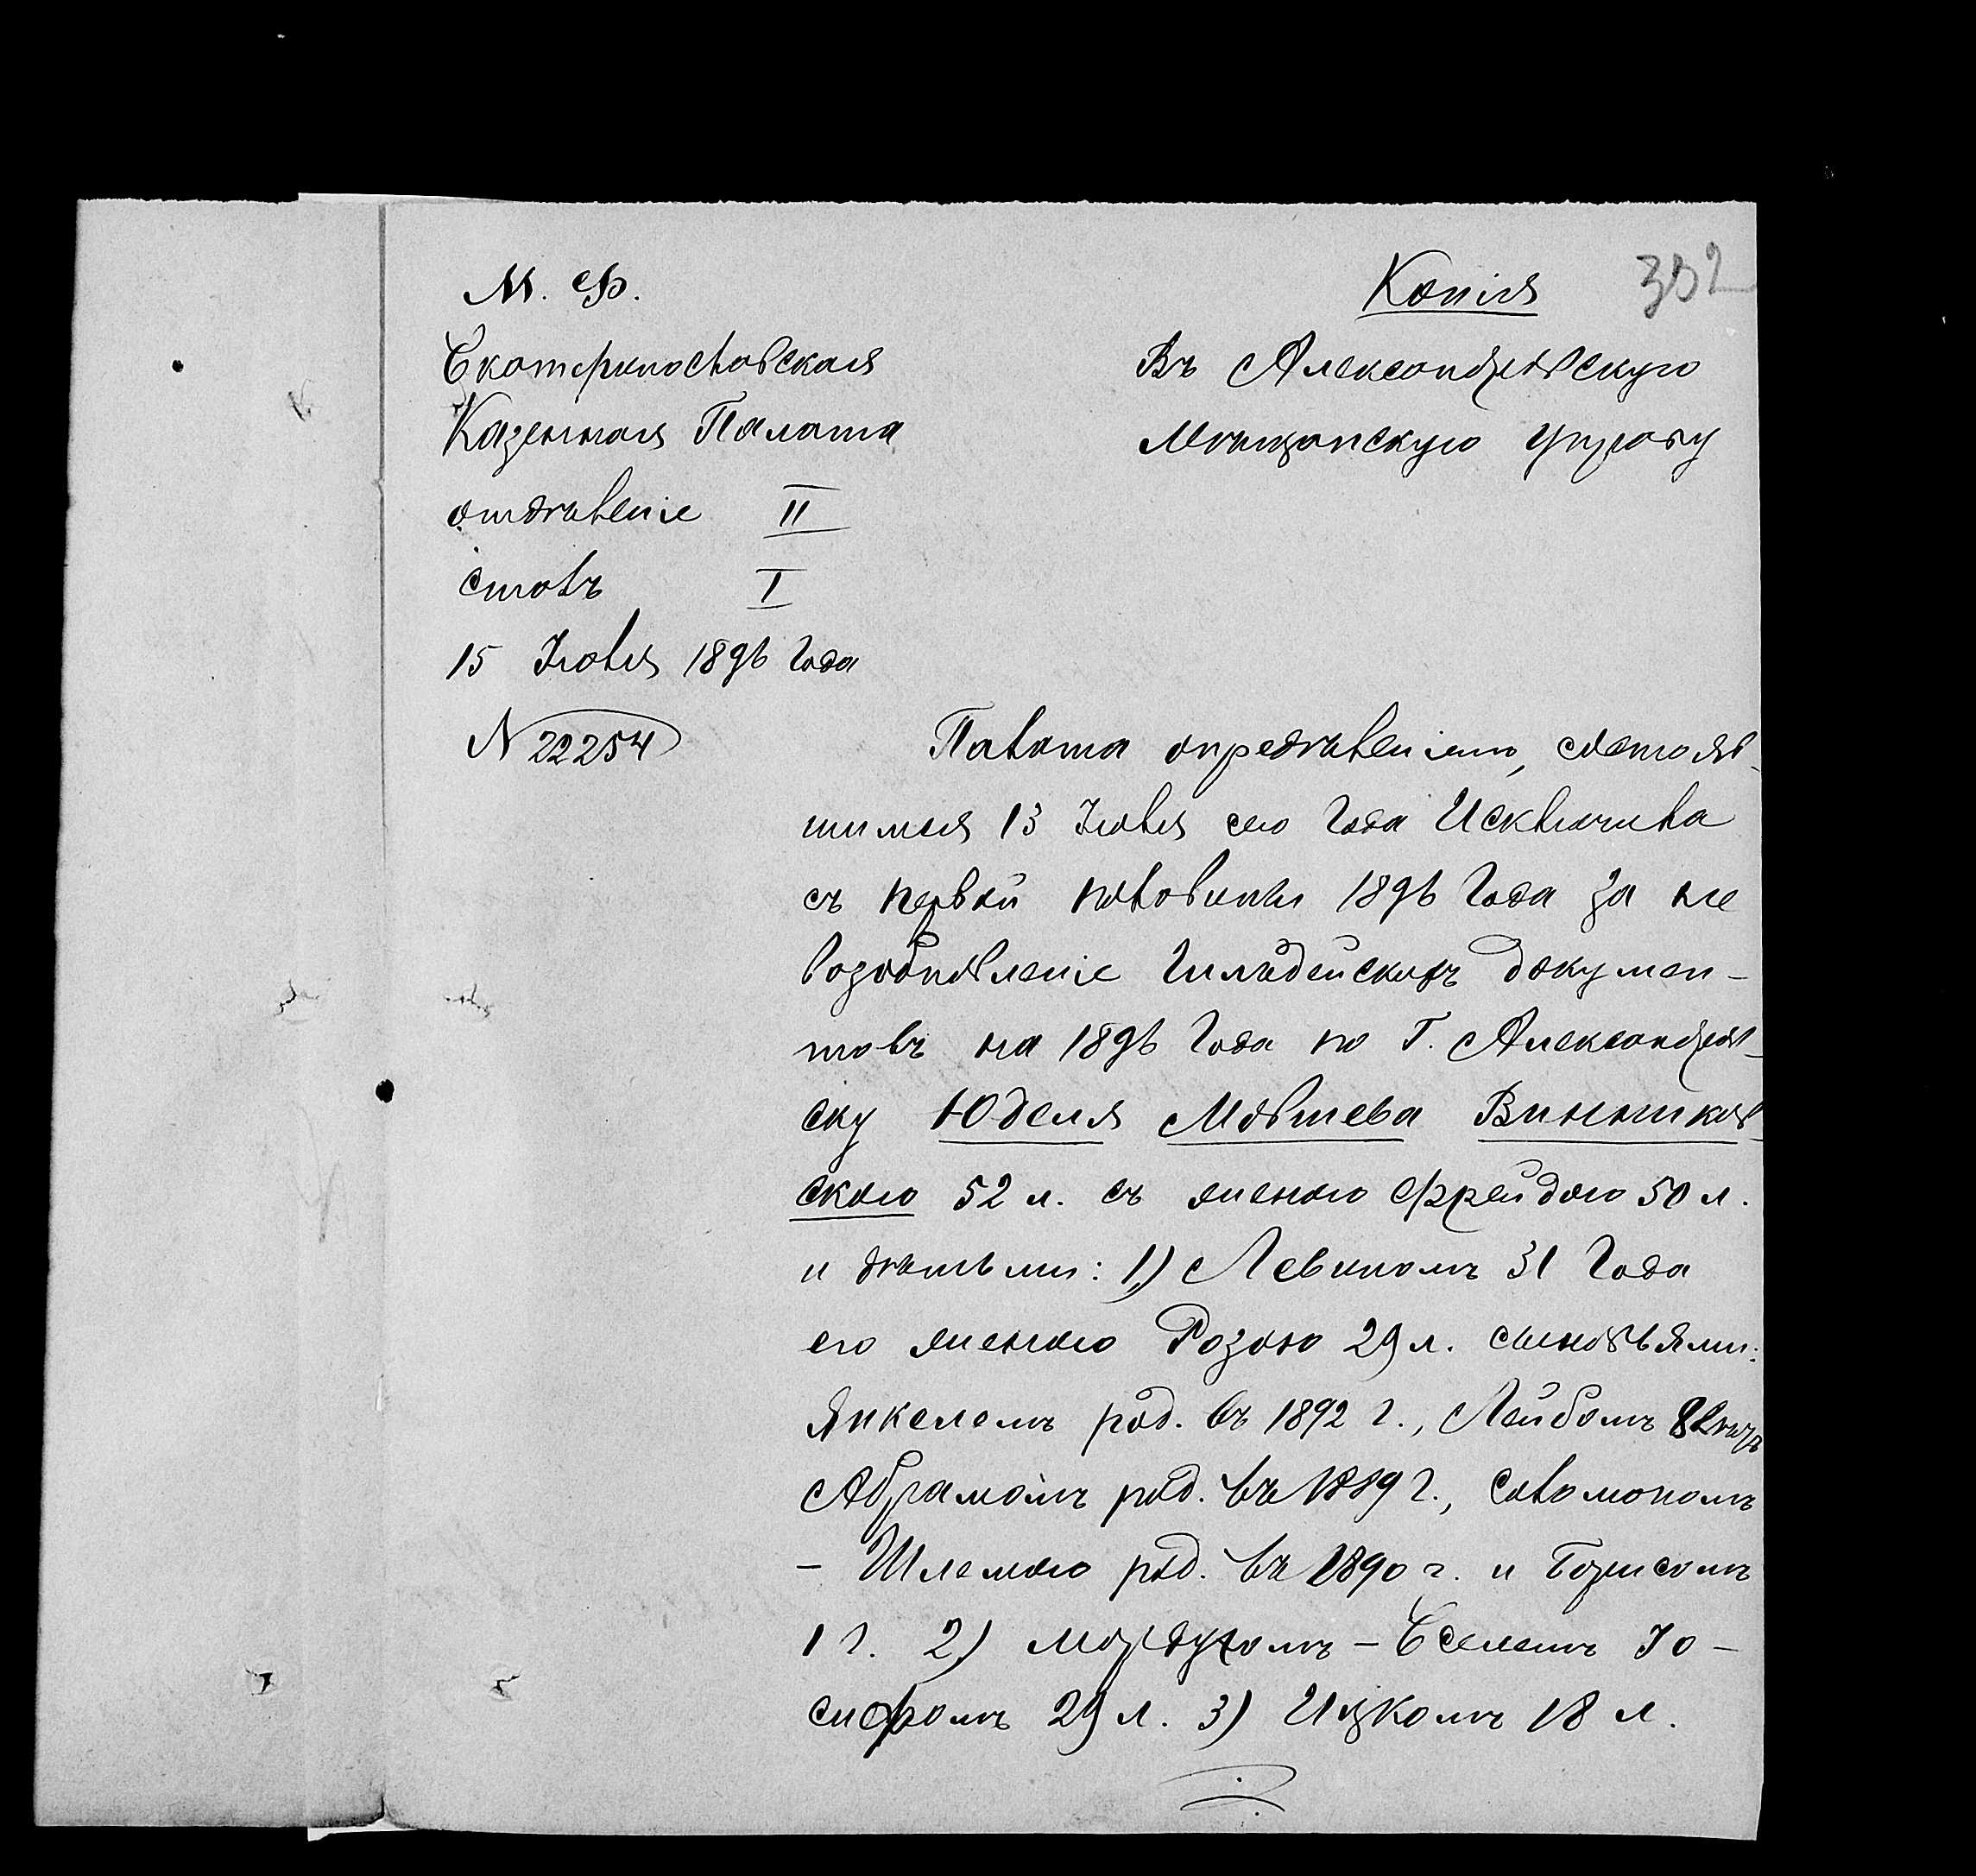 М. Ф.
Копія
332
Екатеринославская
Казенная Палата
отдѣленіе II
столъ I
15 Іюля 1896 года
N 22254
Въ Александровскую
Мѣщанскую Управу
Палата опредѣленіемъ, состояв-
шимся 13 Іюля сего года Исключила
съ первой половины 1896 года за не
возобновленіе Гильдейскихъ докумен-
товъ на 1896 года по Г. Александров-
ску Юделя Мовшева Винников-
скаго 52 л. съ женою Фрейдою 50 л.
и дѣтьми: 1) Левикомъ 31 года
его женою Розою 29 л. сыновьями:
Янкелемъ род. въ 1892 г., Лейбомъ
Абрамомъ род. въ 1889 г., Соломономъ
- Шлемою род. въ 1890 г. и Борисомъ
1 г. 2) Мордухомъ - Еселемъ Іо-
сифомъ 29 л. 3) Ицкомъ 18 л.